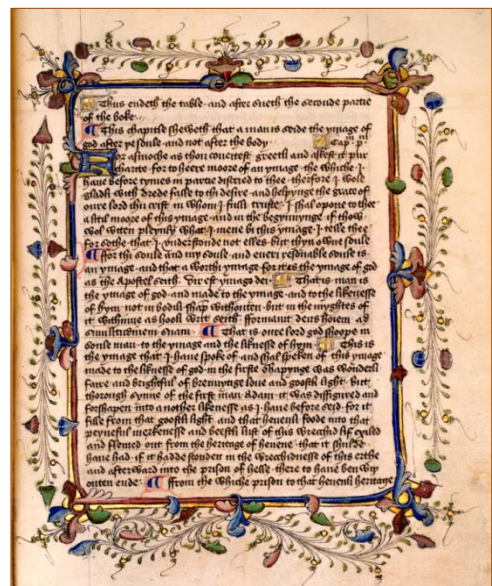 Thus endeth the table · and after sueth the seconde partie
of the boke ·
This chapitle sheweth that a man is seide the ymage of
god after þe soule and not after the body Cap · pᵐ
for asmoche as thou coueitest greetli and askest it pur
charite · for to heere moore of an ymage · the whiche · I
haue before tymes in partie discried to thee · therfore I wole
gladli with drede falle to thi desire · and helpynge the grace of
oure lord ihu crist in whom I fulli triste · I shal opone to thee
a litil moore of this ymage · and in the begynnynge if thow
wol witen pleynly what · I mene bi this ymage · I telle thee
for sothe that · I · vnderstonde not elles · but thyn owne soule
ffor thi soule and my soule and eueri resonable soule is
an ymage · and that a worthi ymage · for it is the ymage of god
as the Apostel seith · Vir est ymago dei · That is man is
the ymage of god and made to the ymage · and to the likenesse
of hym · not in bodili shap withouten · but in the myghtes of
it withinne as hooli writ seith · fformauit deus hominem ad
similitudinem suam · That is oure lord god shoope in
soule man · to the ymage and the liknesse of hym · This is
the ymage that · I · haue spoke of · and shal speken of this ymage
made to the likenesse of god · in the firste shapynge was wonderli
faire and brightful of brennynge loue and goostli light · but
thorough synne of the first man Adam · it was disfigurid and
forshapen into a nother likenesse as · I · haue before seid · for it
fille from that goostli light · and that heuenli foode into that
peyneful merkenesse · and beestli lust of this wrecchid lif exiled
and flemed out from the heritage of heuene · that it shulde
haue had · if it hadde stonden in the wrecchidnesse of this erthe
and afterward into the prison of helle · there to haue ben wiþ
outen ende · ffrom the whiche prison to that heuenli heritage